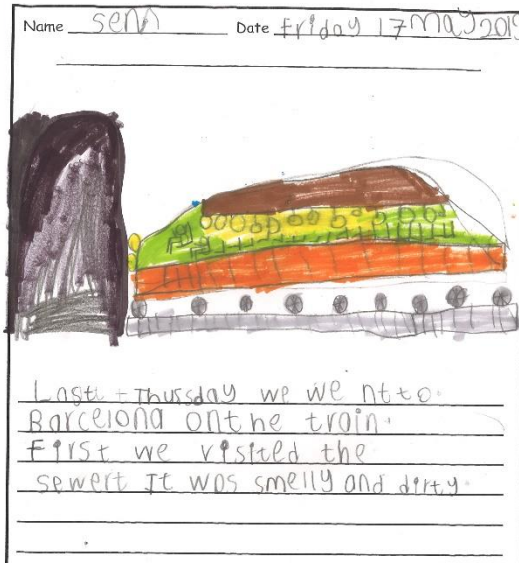 Name Senn Date Friday 17 May 2019
Last Thussday we we nt to.
Barcelona onthe train.
First we visited the
sewert It was smelly and dirty.